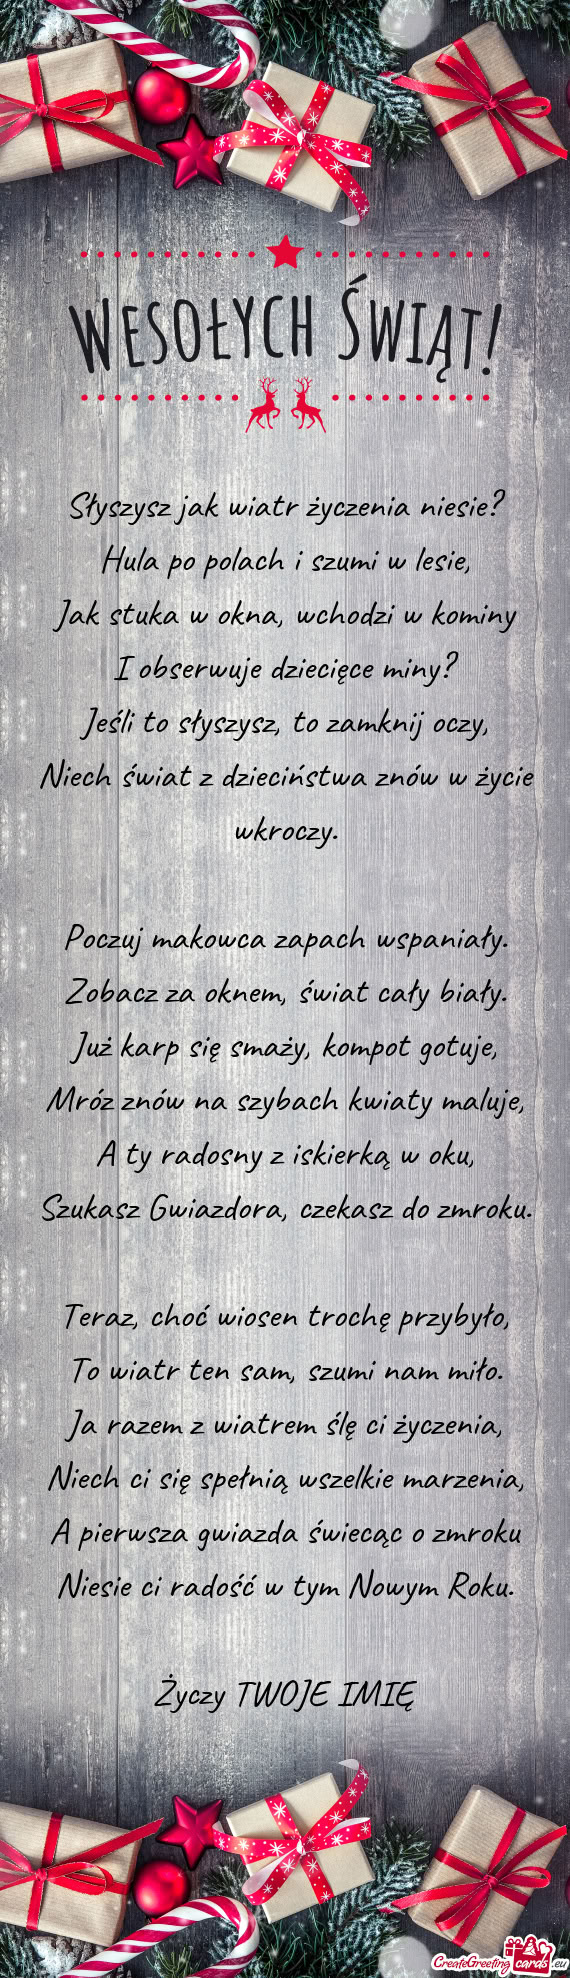 WESOŁYCH ŚWIĄT!
Słyszysz jak wiatr życzenia niesie?
Hula po polach i szumi w lesie,
Jak stuka w okna, wchodzi w kominy
I obserwuje dziecięce miny?
Jeśli to słyszysz, to zamknij oczy,
Niech świat z dzieciństwa znów w życie
wkroczy.
Poczuj makowca zapach wspaniały.
Zobacz za oknem, świat cały biały.
Już karp się smaży, kompot gotuje,
Mróz znów na szybach kwiaty maluje,
A ty radosny z iskierką w oku,
Szukasz Gwiazdora, czekasz do zmroku.
Teraz, choć wiosen trochę przybyło,
To wiatr ten sam, szumi nam miło.
Ja razem z wiatrem ślę ci życzenia,
Niech ci się spełnią wszelkie marzenia,
A pierwsza gwiazda świecąc o zmroku
Niesie ci radość w tym Nowym Roku.
Życzy TWOJE IMIĘ
CreateGreetingcards.eu